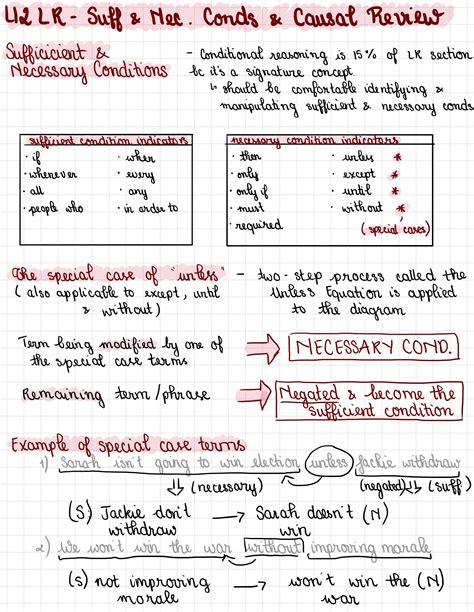 L12 LR - Suff & Nec. Conds & Causal Review
Sufficicient &
Necessary Conditions
- Conditional reasoning is 15% of LR section
bc it's a signature concept
↳ should be comfortable identifying &
manipulating sufficient & necessary conds
sufficient condition indicators
· if · when
· whenever · every
· all · any
· people who · in order to
necessary condition indicators
· then · unless *
· only · except *
· only if · until *
· must · without *
· required (special cases)
The special case of "unless"
(also applicable to except, until
& without)
- two-step process called the
Unless Equation is applied
to the diagram
Term being modified by one of
the special case terms
NECESSARY COND.
Remaining term/phrase
Negated & become the
sufficient condition
Example of special case terms
1) Sarah isn't going to win election unless Jackie withdraw
(necessary) (negated) (suff)
(S) Jackie don't → Sarah doesn't (N)
withdraw win
2) We won't win the war without improving morale
(S) not improving → won't win the (N)
morale war